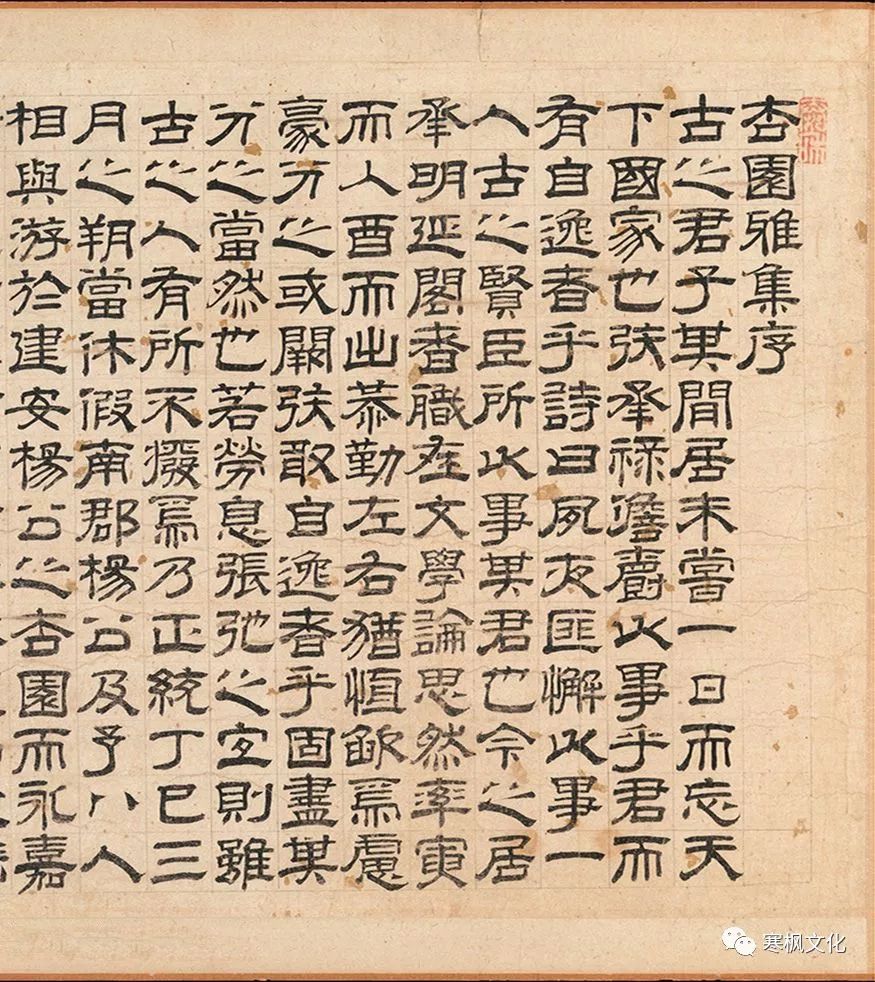 杏園雅集序
古之君子其閒居未嘗一日而忘天
下國家也矧承祿儋爵以事乎君而
有自逸者乎詩曰夙夜匪懈以事一
人古之賢臣所以事其君也今之居
承明延閣者職在文學論思然率寅
而入酉而出恭勤左右猶恒歉焉慮
豪分之或闕矧敢自逸者乎固盡其
分之當然也若勞息張弛之宜則雖
古之人有所不癈焉乃正統丁巳三
月之朔當休假南郡楊公及予八人
相與游於建安楊公之杏園而永嘉
寒枫文化